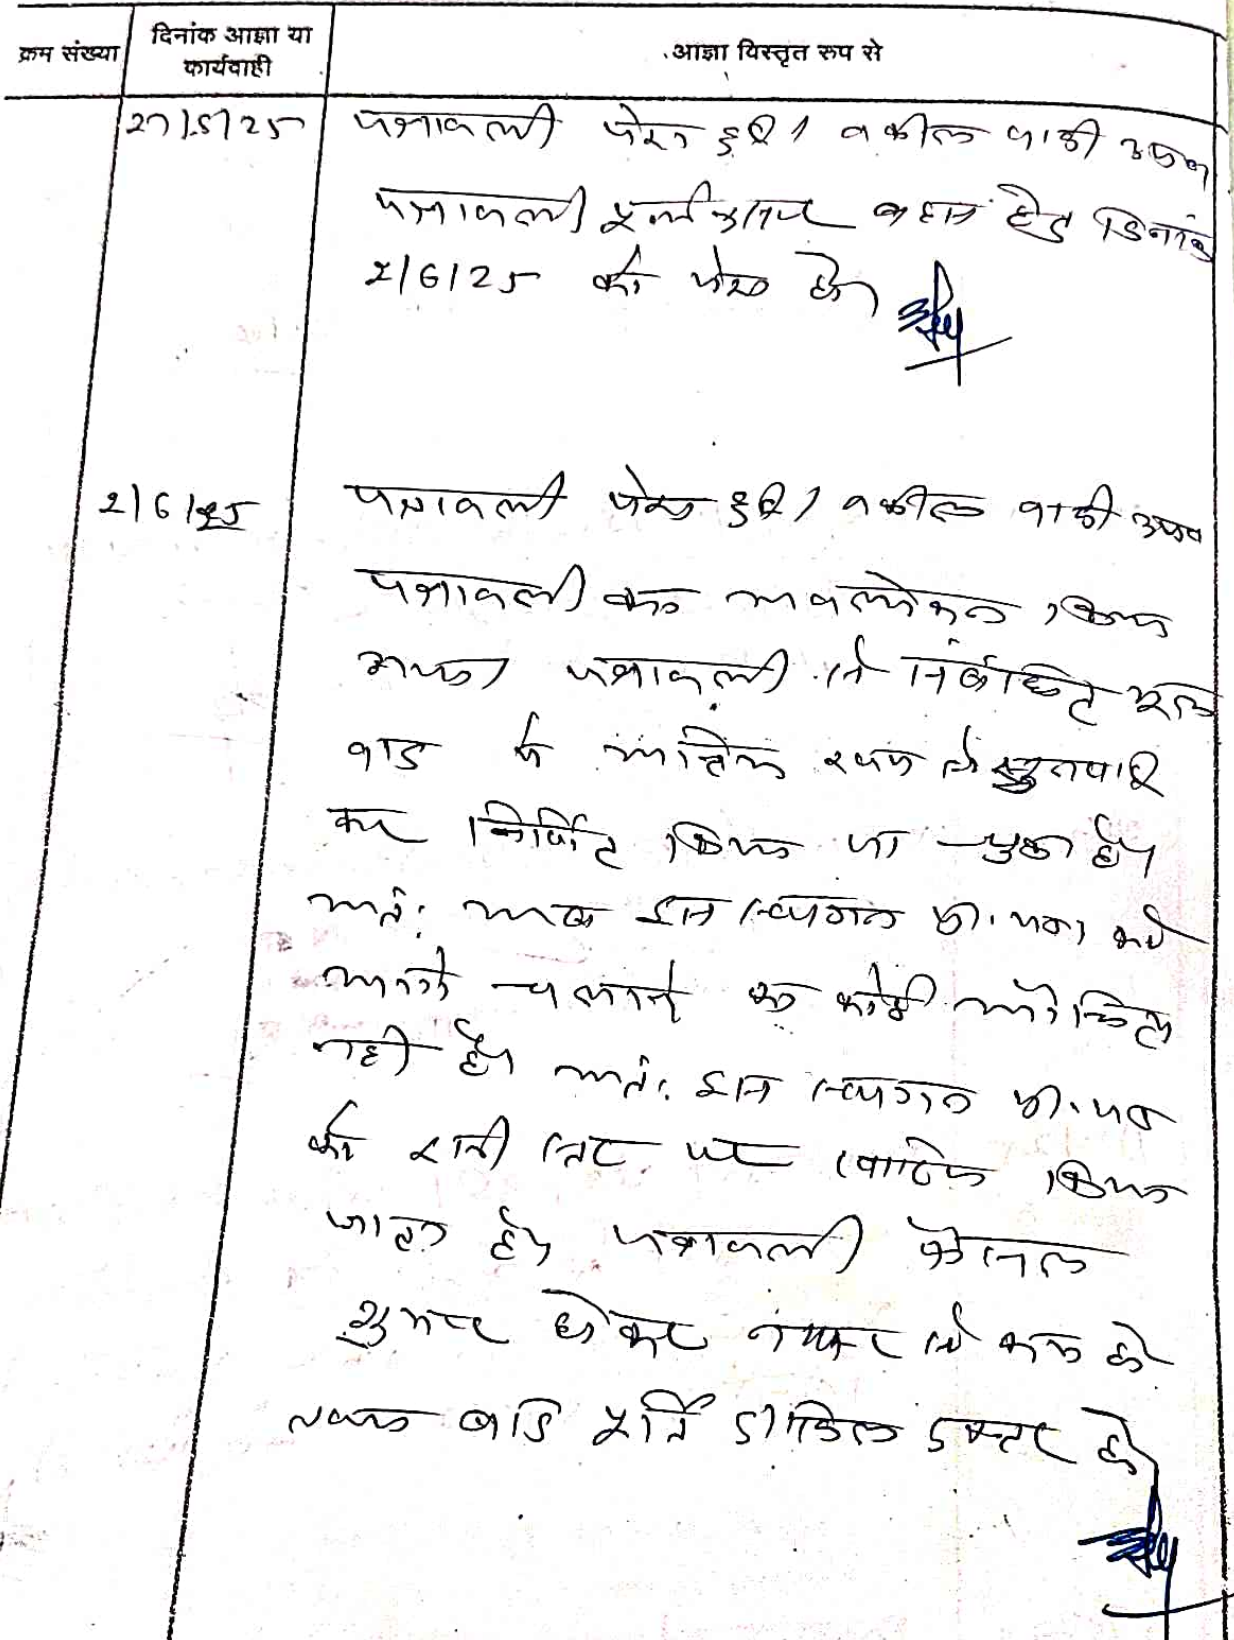 क्रम संख्या
दिनांक आज्ञा या
कार्यवाही
आज्ञा विस्तृत रूप से
27/5/25 पत्रावली पेश हुई। वकील वादी उप०
पत्रावली पूर्वानुसार बहस हेतु दिनांक
2/6/25 को पेश हो।
2/6/25 पत्रावली पेश हुई। वकील वादी उप०
पत्रावली का अवलोकन किया
गया। पत्रावली से मूल
वाद में अंतिम रूप से सुनवाई
कर निर्णित किया जा चुका है।
अतः अब इस स्थगन प्रा. पत्र को
आगे चलाने का कोई औचित्य
नही है। अतः इस स्थगन प्रा. पत्र
को इसी स्टेज पर खारिज किया
जाता है। पत्रावली फैसल
शुमार होकर नम्बर से कम हो
बाद पूर्ति दाखिल दफ्तर हो।